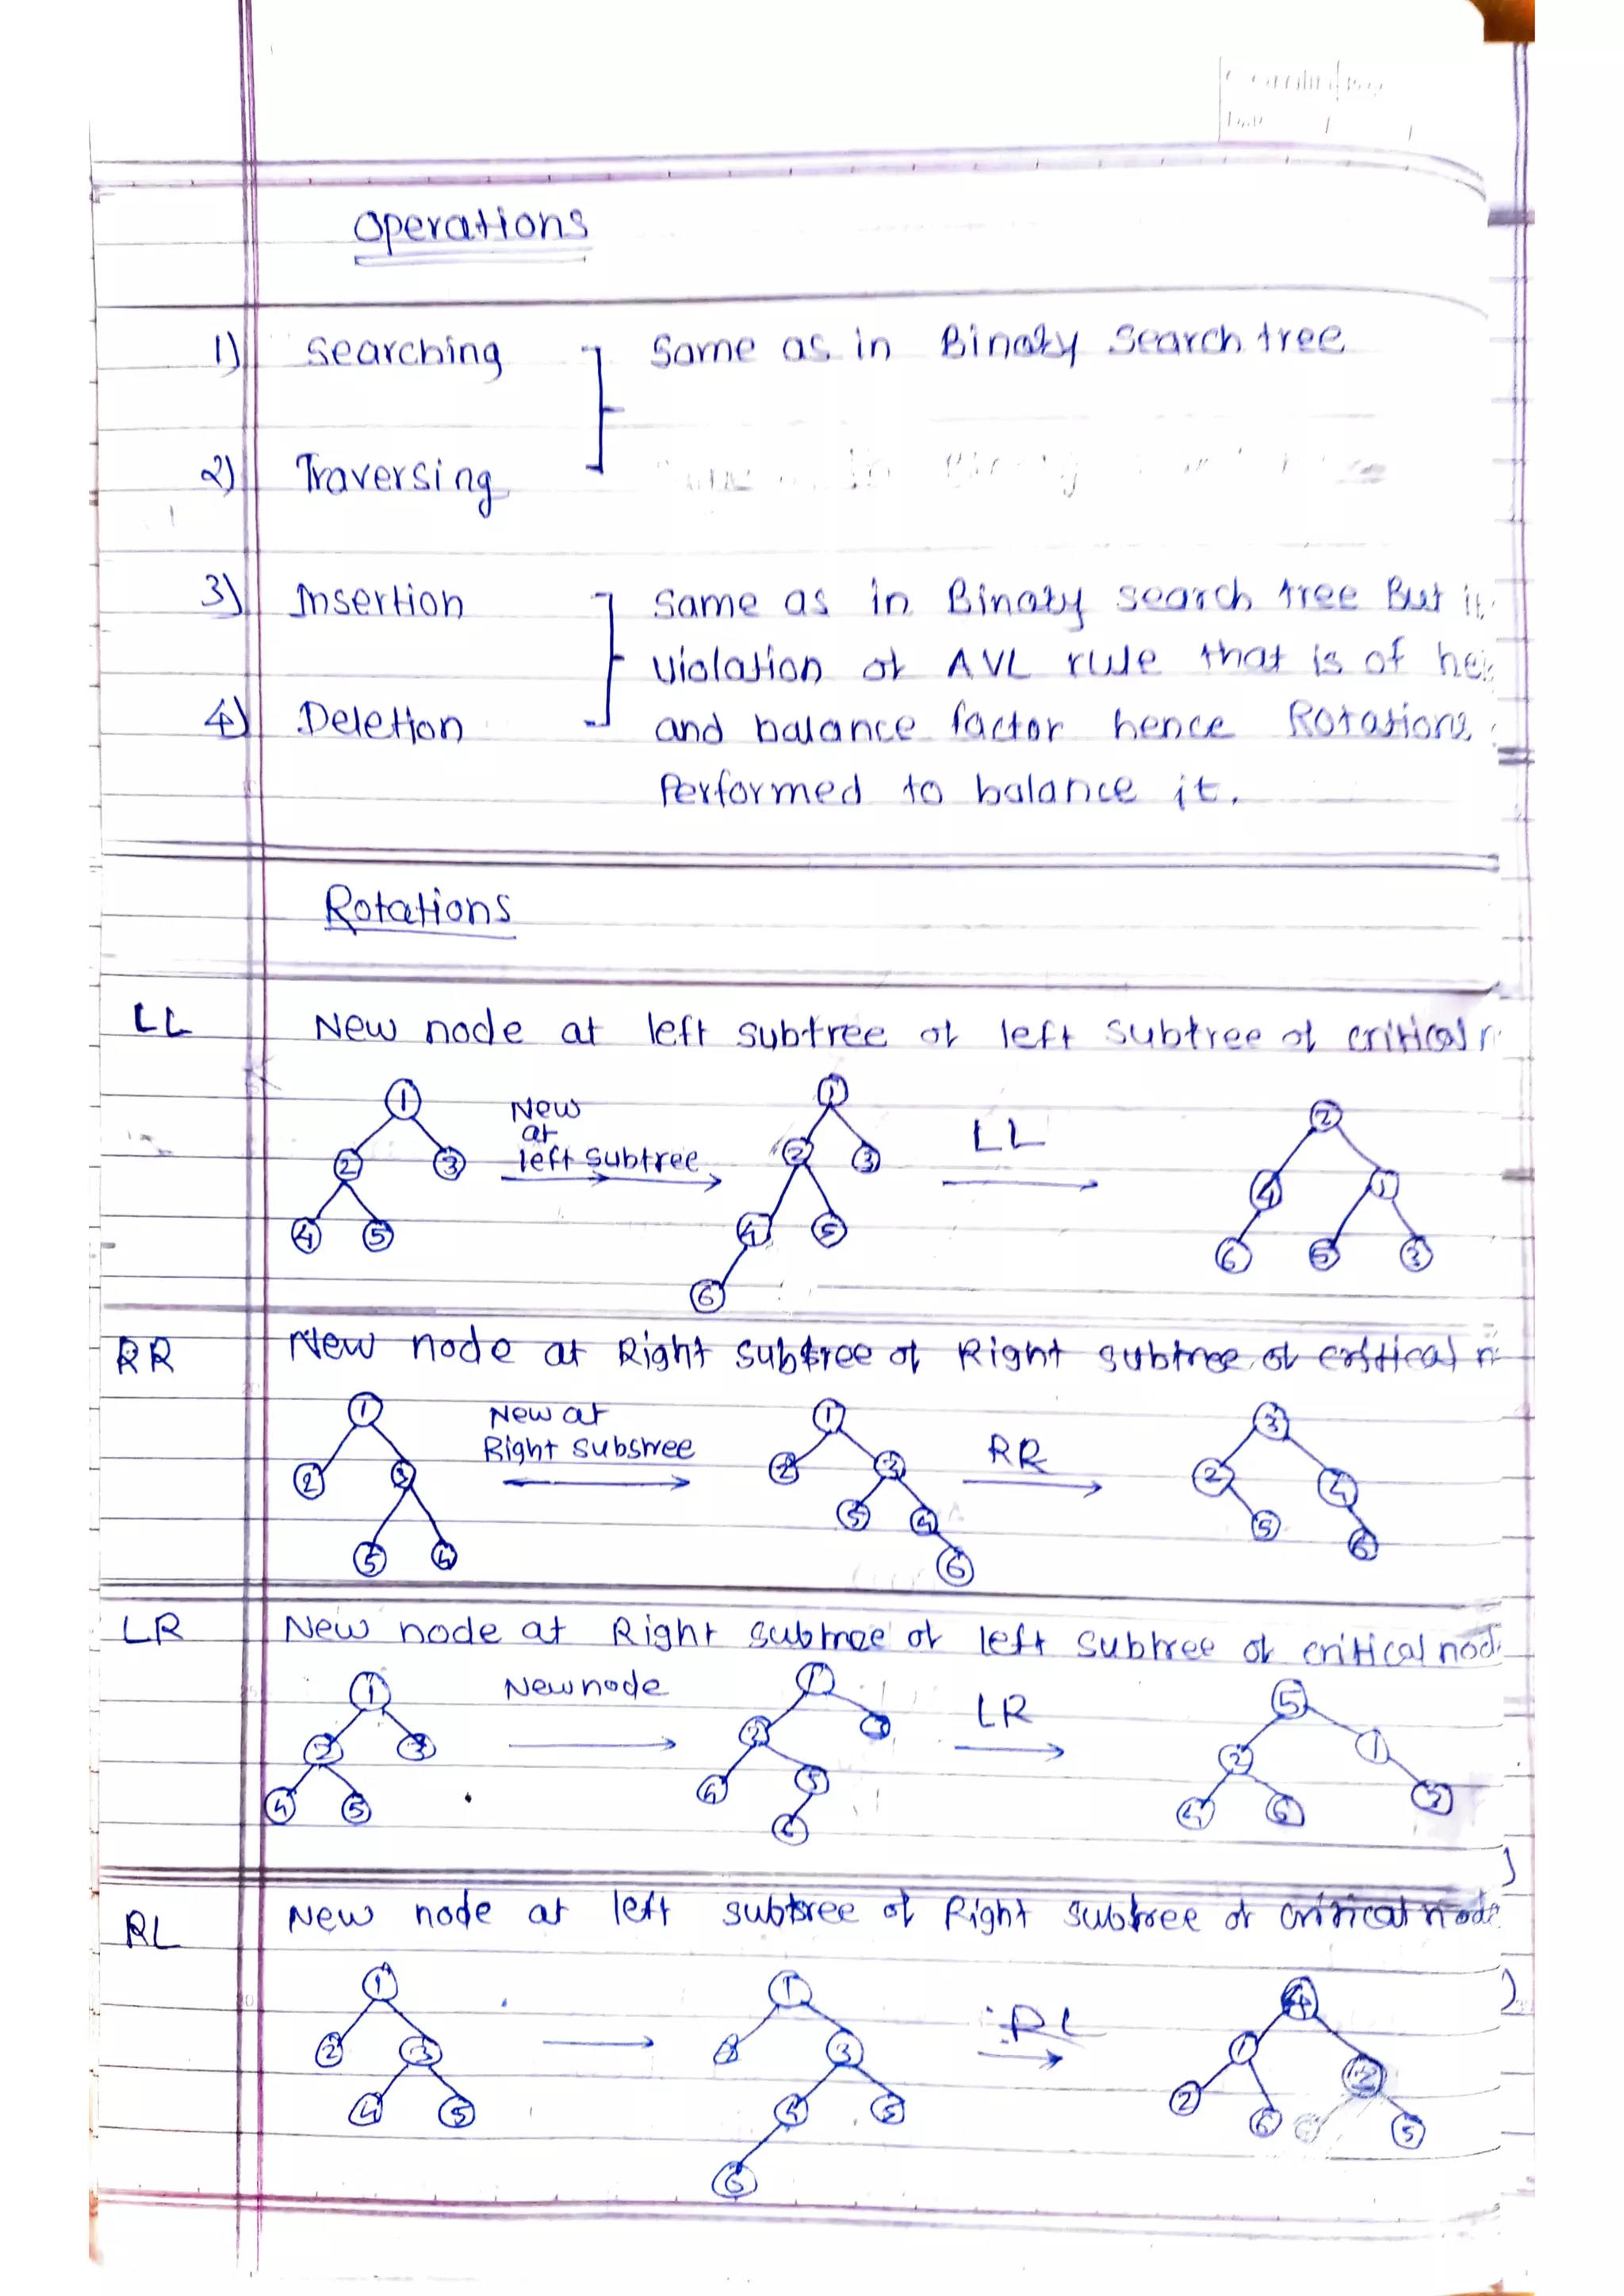 Operations
1) Searching Same as in Binary Search tree
2) Traversing
3) Insertion Same as in Binary search tree But it
violation of AVL rule that is of hei
4) Deletion and balance factor hence Rotations
Performed to balance it.
Rotations
LL New node at left subtree of left subtree of critical n
1 New 1 LL 2
at
2 3 left subtree 2 3 4 1
4 5 4 5 6 5 3
6
RR New node at Right subtree of Right subtree of critical n
1 New at 1 RR 3
Right subtree
2 3 2 3 2 4
5 4 5 4 5 6
6
LR New node at Right subtree of left subtree of critical nod
1 New node 1 LR 5
2 3 2 3 2 1
4 5 4 5 4 6 3
6
RL New node at left subtree of Right subtree of critical node
1 1 RL 4
2 3 3 1
4 5 4 5 2 6 5
6